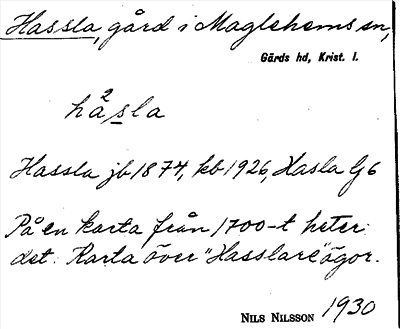 Hassla, gård i Maglehems sn,
Gärds hd, Krist. l.
hå²sla
Hassla jb 1874, kb 1926, Hasla G 6
På en karta från 1700-t heter
det: Karta över "Hasslare" ägor.
NILS NILSSON 1930